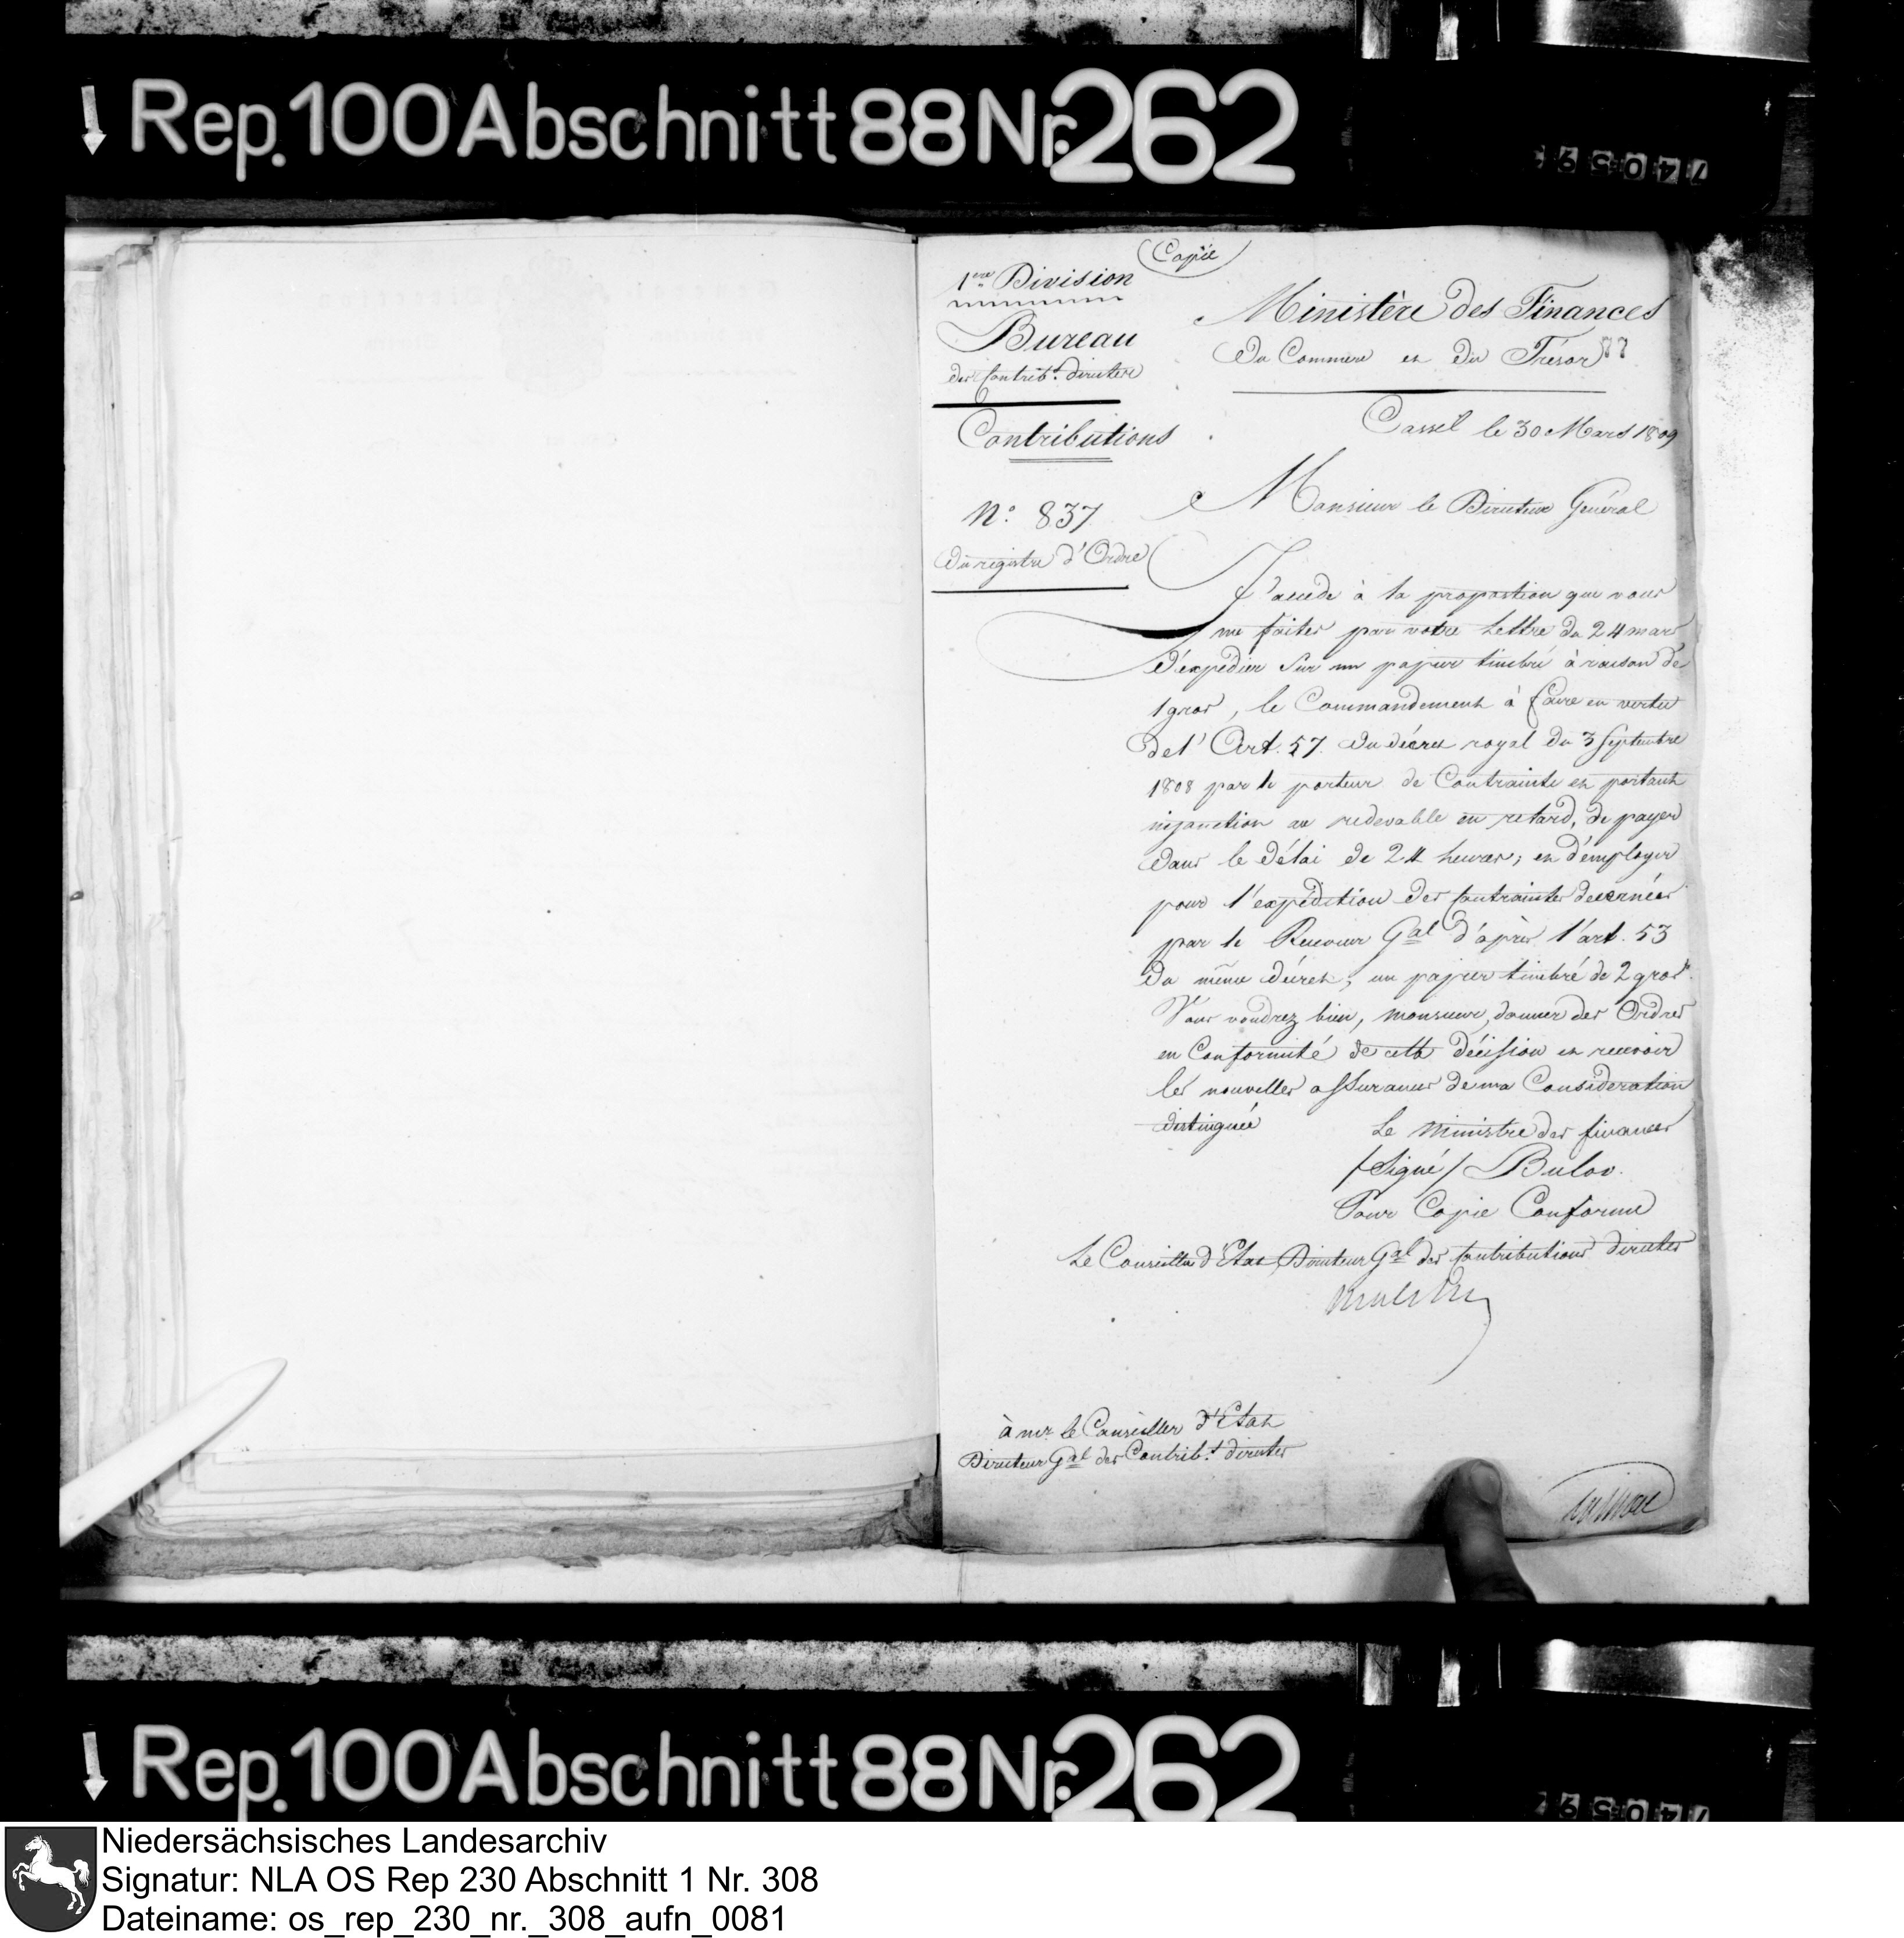 Rep. 100 Abschnitt 88 Nr. 262
74059
Copie
1ere Division
Bureau
des Contribt. directes
Contributions
N° 837
du registre d'Ordre
Ministère des Finances
Du Commerce et Du Trésor
77
Cassel le 30 Mars 1809
Monsieur le Directeur Général
J'accede à la proposition que vous
me faites par votre Lettre du 24 mars
d'expédier sur un papier timbré à raison de
1 gros, le Commandement à faire en vertu
de l'Art. 57. du décret royal du 3 Septembre
1808 par le porteur de Contrainte et portant
injonction au redevable en retard, de payer
dans le délai de 24 heures; et d'employer
pour l'expédition des Contraintes decernées
par le Receveur Gal d'après l'art. 53
du même décret, un papier timbré de 2 gros.
Vous voudrez bien, monsieur, donner des Ordres
en Conformité de cette décision et recevoir
les nouvelles assurances de ma Consideration
distinguée
Le Ministre des finances
/Signé/ Bulov.
Pour Copie Conforme
Le Conseiller d'Etat Directeur Gal des Contributions directes
à mr. le Conseiller d'Etat
Directeur Gal des Contribt. directes
Rep. 100 Abschnitt 88 Nr. 262
74059
Niedersächsisches Landesarchiv
Signatur: NLA OS Rep 230 Abschnitt 1 Nr. 308
Dateiname: os_rep_230_nr._308_aufn_0081